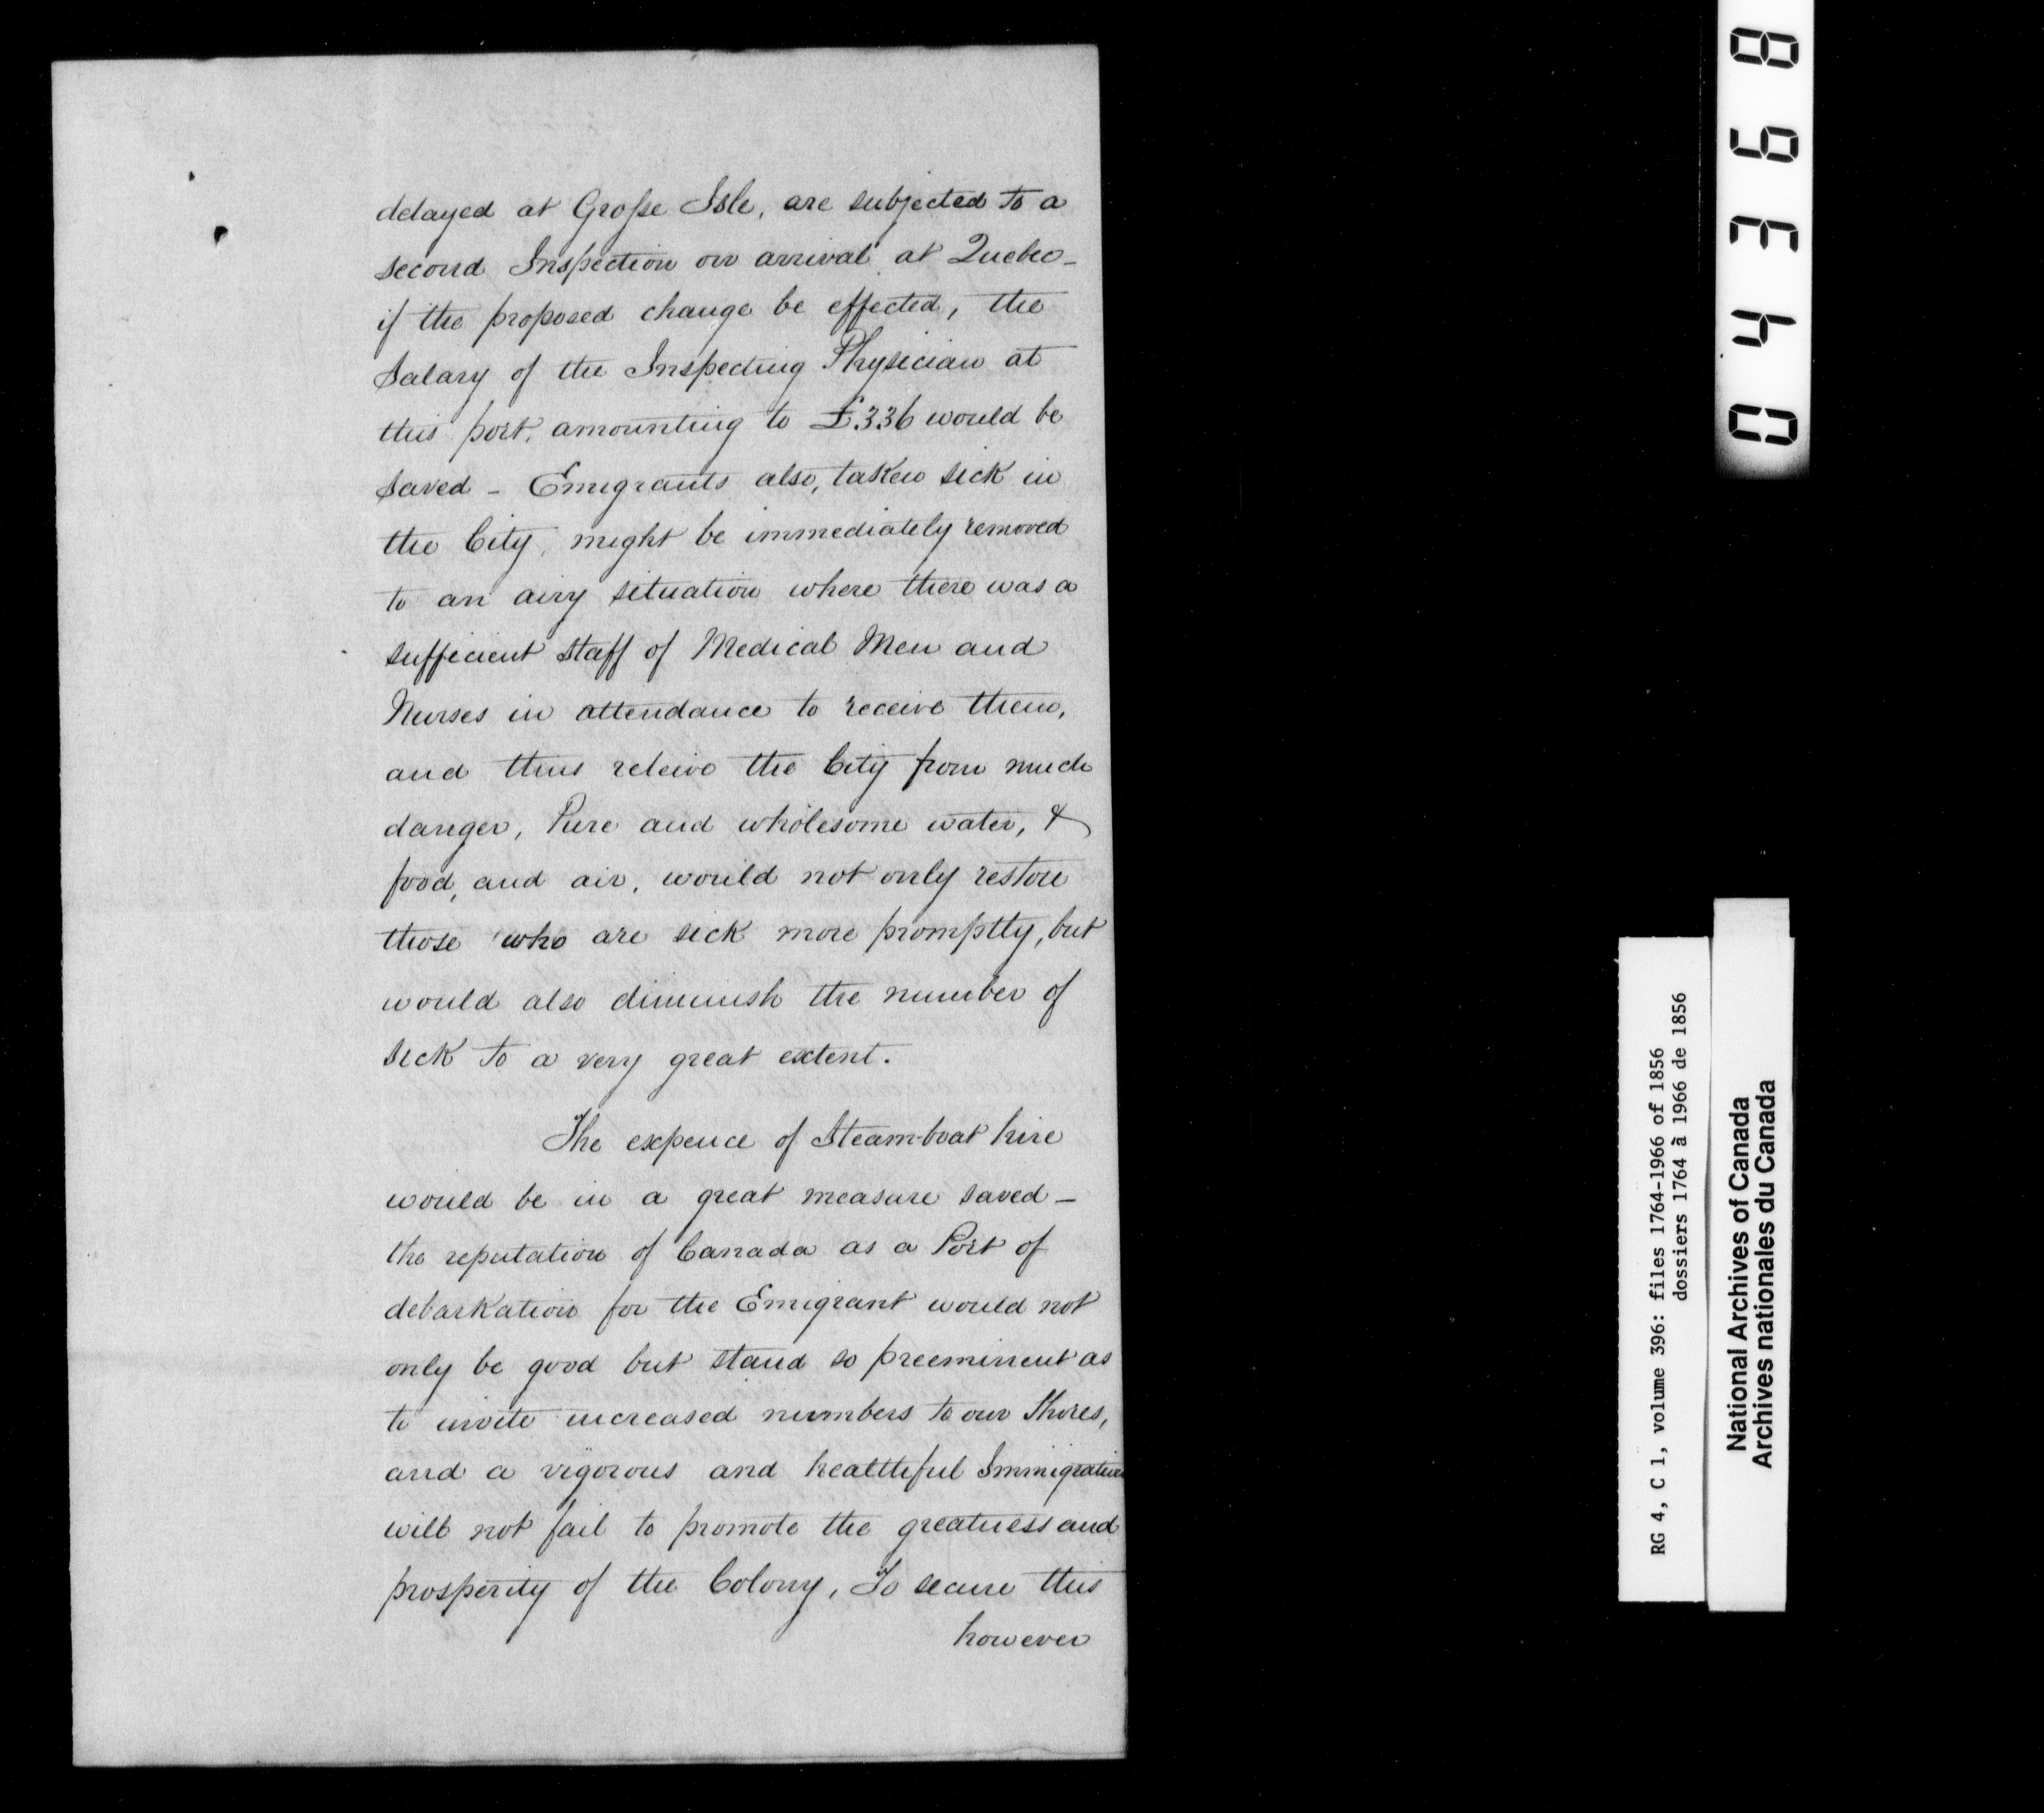 delayed at Grosse Isle, are subjected to a
second Inspection on arrival at Quebec_
if the proposed change be effected, the
Salary of the Inspecting Physician at
this port, amounting to £336 would be
saved _ Emigrants also, taken sick in
the City, might be immediately removed
to an airy situation where there was a
sufficient staff of Medical Men and
Nurses in attendance to receive them,
and thus releive the City from much
danger, Pure and wholesome water, &
food, and air, would not only restore
those who are sick more promptly, but
would also diminish the number of
sick to a very great extent.
The expence of Steam-boat hire
would be in a great measure saved _
the reputation of Canada as a Port of
debarkation for the Emigrant would not
only be good but stand so preeminent as
to invite increased numbers to our Shores,
and a vigorous and healthful Immigration
will not fail to promote the greatness and
prosperity of the Colony, To secure this
however
04368
RG 4, C 1, volume 396: files 1764-1966 of 1856
dossiers 1764 à 1966 de 1856
National Archives of Canada
Archives nationales du Canada